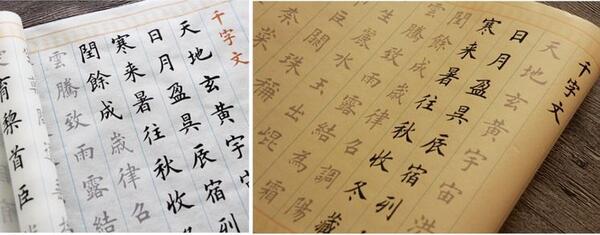 千字文
天地玄黄宇
日月盈昃辰宿列
寒来暑往秋收
閏餘成歲律召
雲騰致雨露結
育黎首臣
千字文
天地玄黄宇宙洪
日月盈昃辰宿列
寒来暑往秋收冬藏
閏餘成歲律召調陽
雲騰致雨露結為霜
生麗水玉出崐
巨闕珠稱
柰菜